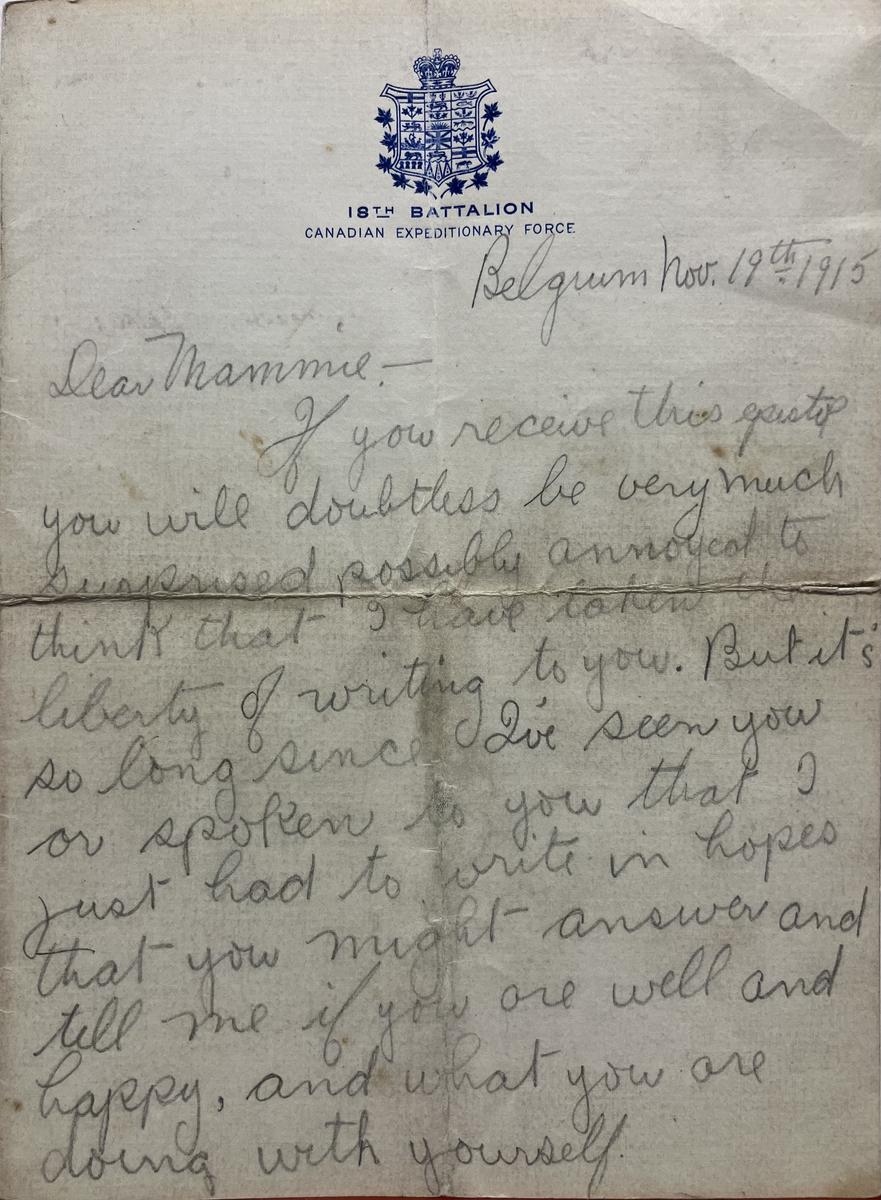 18TH BATTALION
CANADIAN EXPEDITIONARY FORCE
Belgium Nov. 19th 1915
Dear Mammie:—
If you receive this
you will doubtless be very much
surprised possibly annoyed to
think that I have taken the
liberty of writing to you. But it's
so long since I've seen you
or spoken to you that I
just had to write in hopes
that you might answer and
tell me if you are well and
happy, and what you are
doing with yourself.